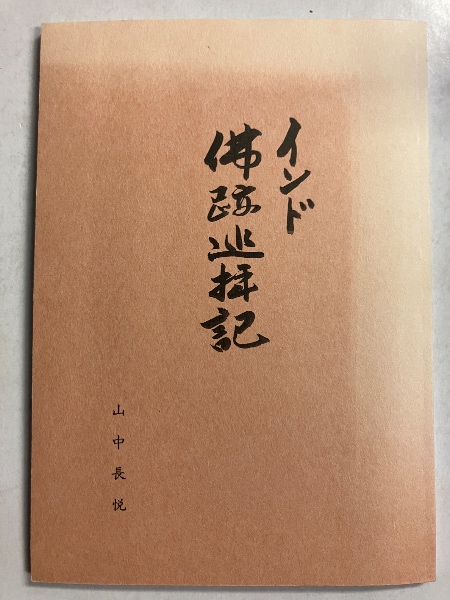 インド
佛跡巡拝記
山中長悦